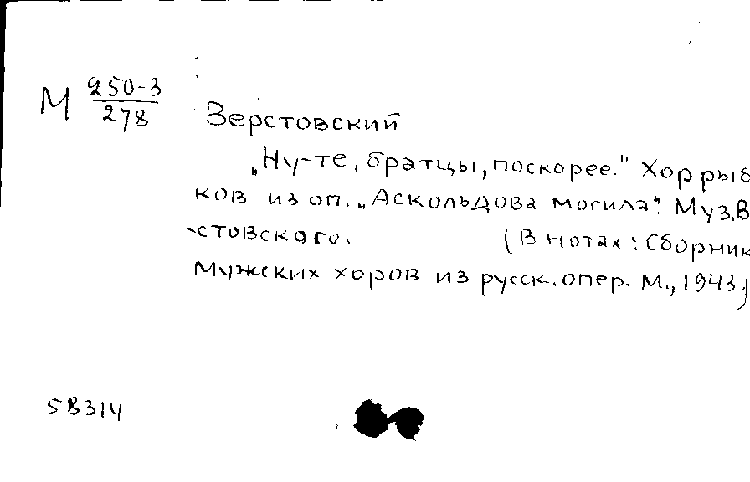 М 250-3/278
Верстовский
„Ну-те, братцы, поскорее." Хор рыб
ков из оп. „Аскольдова могила". Муз. В
стовского. (В нотах: Сборник
мужских хоров из русск. опер. М., 1943)
58314